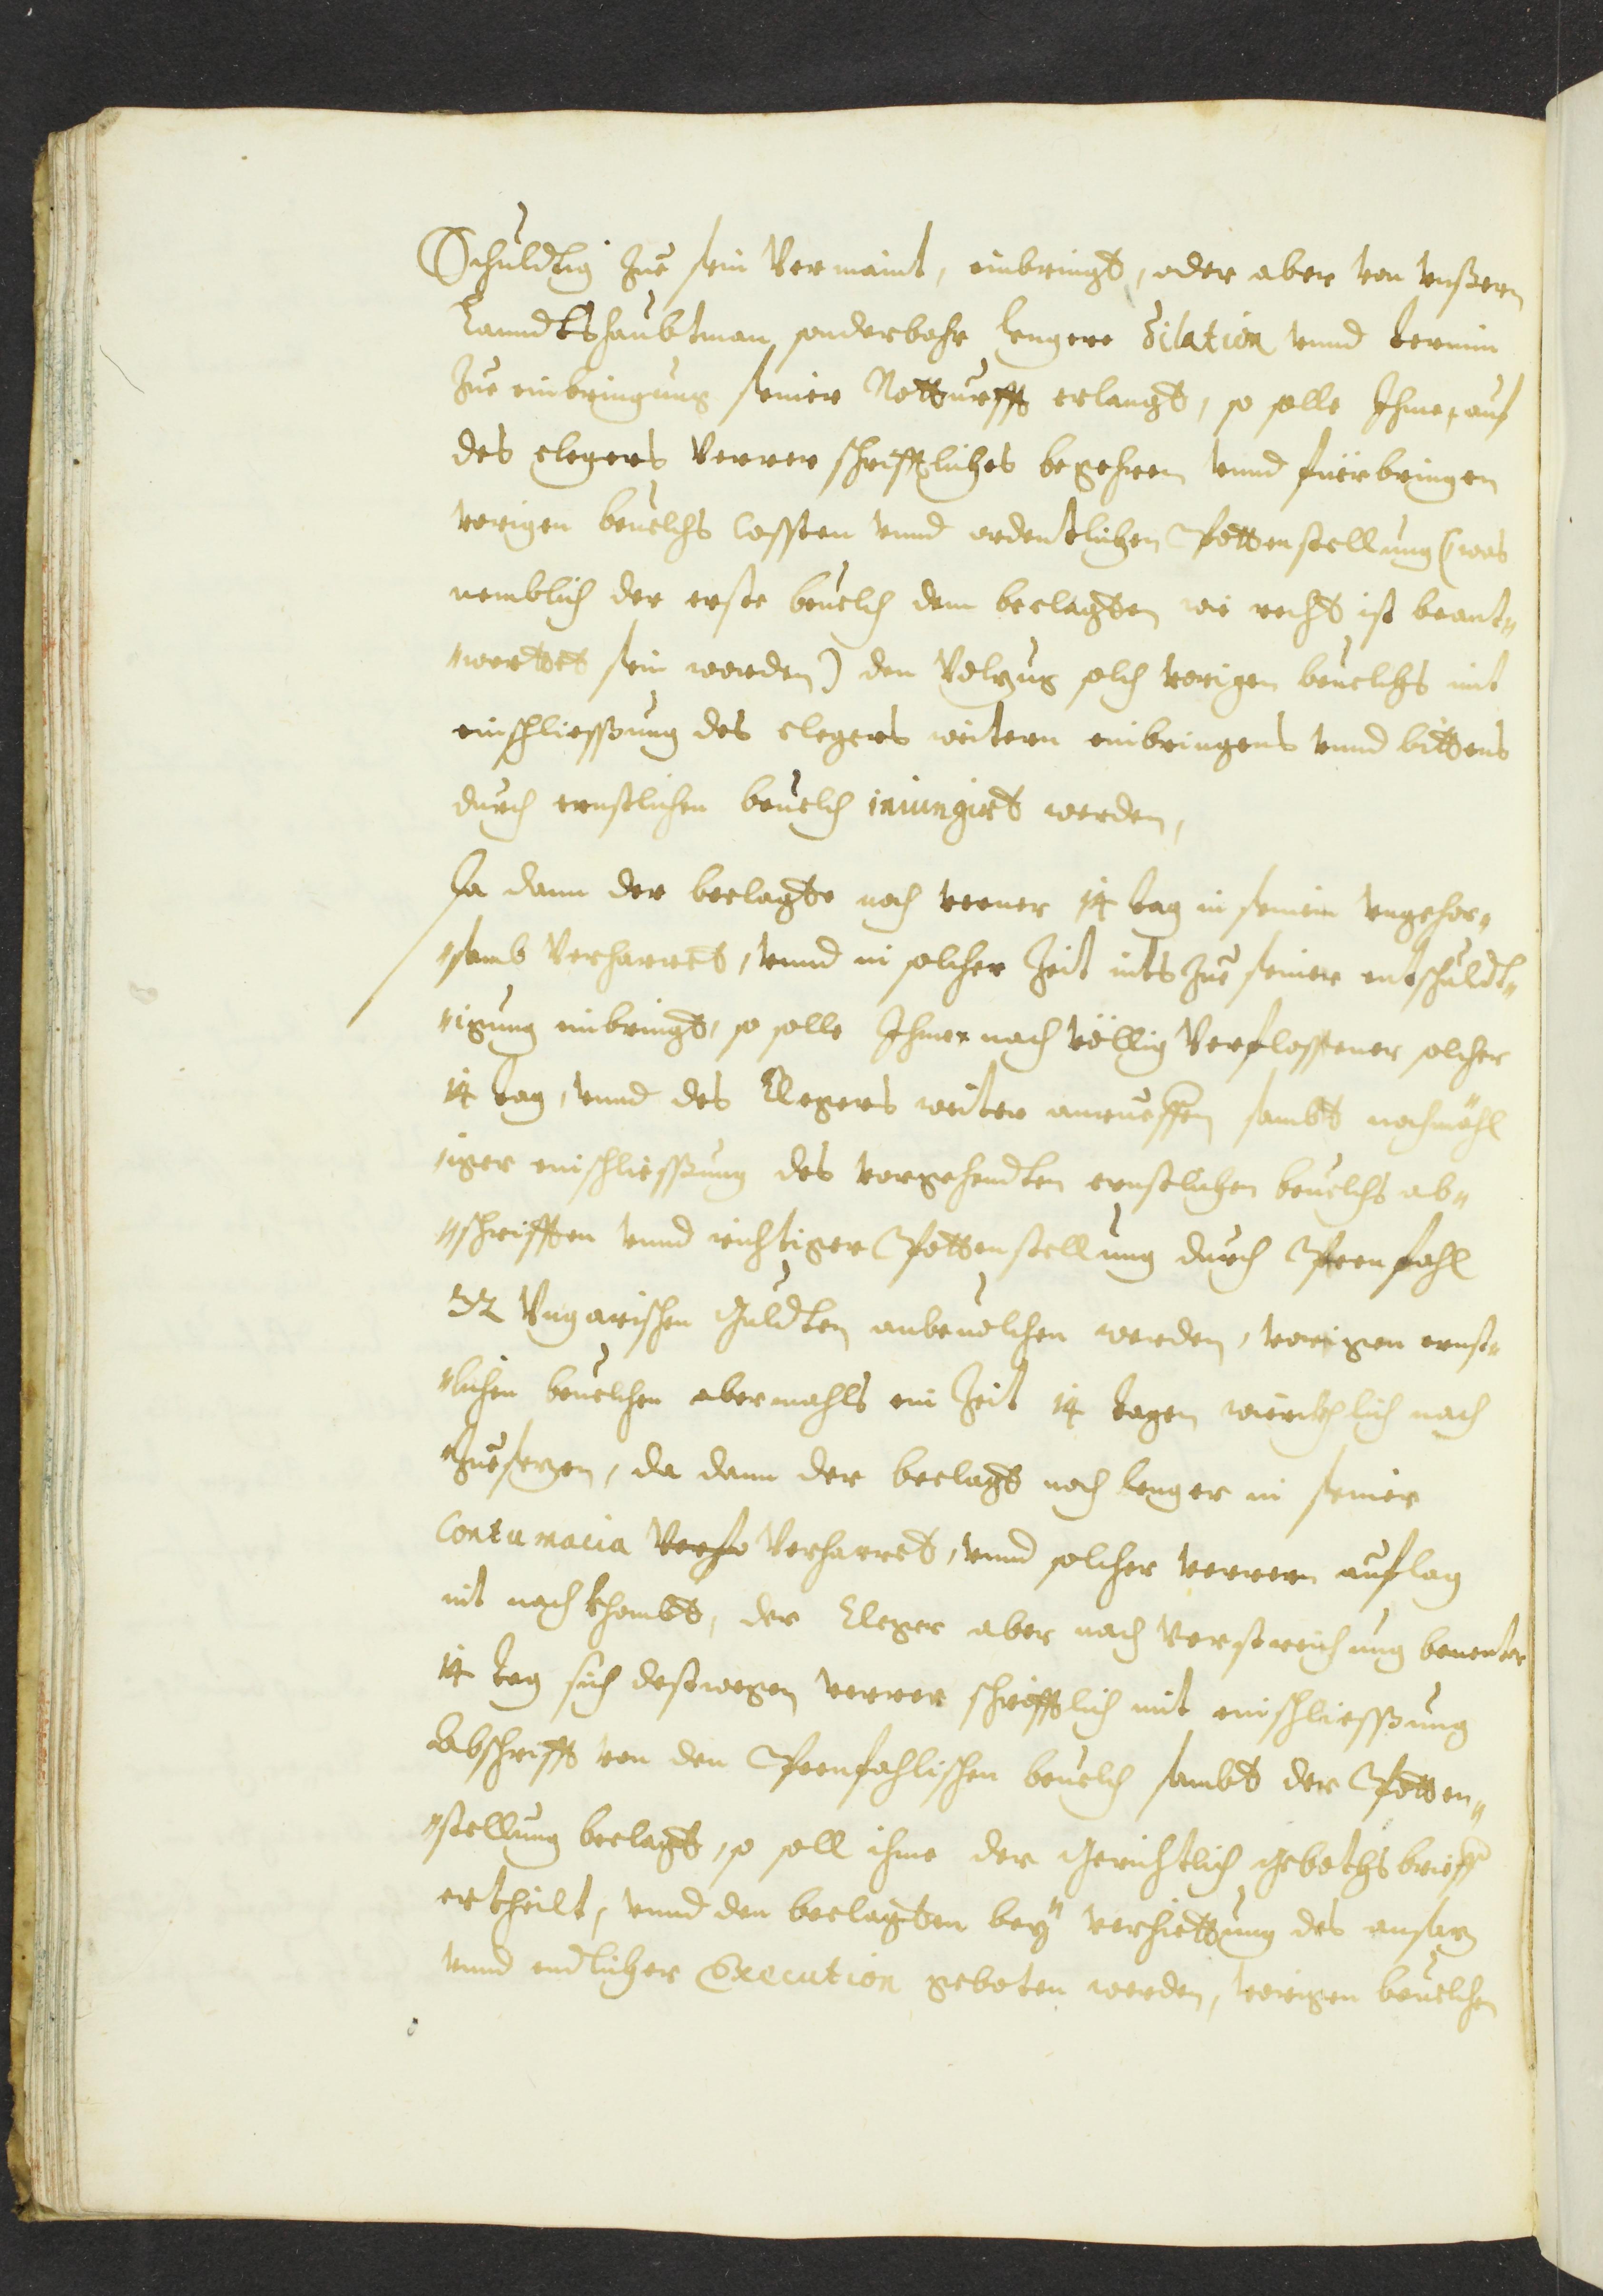 Schuldtig zue sein Vermaint, einbringt, oder aber von vnßern
Lanndtshaubtman sonderbahr lengere Dilation vnnd termin
Zue einbringung seiner Notturfft erlangt, so solle Ihme, auf
des clegers verrer schrifftliches begehren vnnd fürbringen
vorigen beuelchs Cossten vnnd ordentlichen Pottenstellung (was
nemblich der erste beuelch dem beclagten wie recht ist beant„
„wortet sein worden) den Volzug solch vorigen beuelchs mit
einschliessung des clegers weitern einbringens vnnd bittens
durch ernstlichen beuelch iniungirt werden,
Ja dann der beclagte noch verner 14 tag in seinem vngehor„
„samb Verharret, vnnd in solcher Zeit nits Zue seiner entschuldt„
„igung einbringt, so solle Ihme nach völlig Verflossener solcher
14 tag, vnnd des Clegers weiter anrueffen sambt nochmähl
„iger einschliessung des vorgehendten ernstlichen beuelchs ab„
„schrifften vnnd richtiger Pottenstellung durch Peenfahl
32 Vngarischen Guldten anbeuolchen werden, vorigen ernst„
„lichen beuelchen abermahls in Zeit 14 tagen würckhlich nach
Zuesezen, da dann der beclagt noch lenger in seiner
Contumacia Verha Verharret, vnnd solcher verrern auflag
nit nachkhombt, der Cleger aber nach Verstreichung benenter
14 tag sich deßwegen verrer schrifftlich mit einschliessung
Abschrifft von den Peenfahlischen beuelch sambt der Potten„
„stellung beclagt, so soll ihme der Gerichtlich gebothsbrieff
ertheilt, vnnd den beclagten bey verhiettung des ansaz
vnnd endlicher Execution geboten werden, vorigen beuelchen